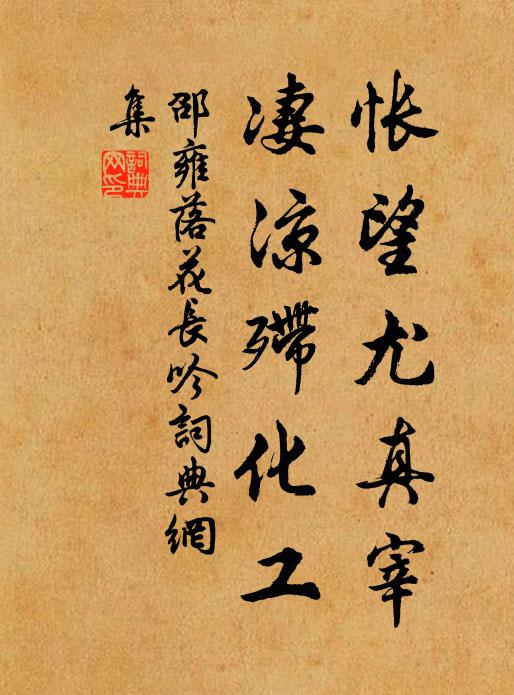 悵望尤真宰
凄涼殢化工
邵雍落花長吟詞典網
集
詞典
网印